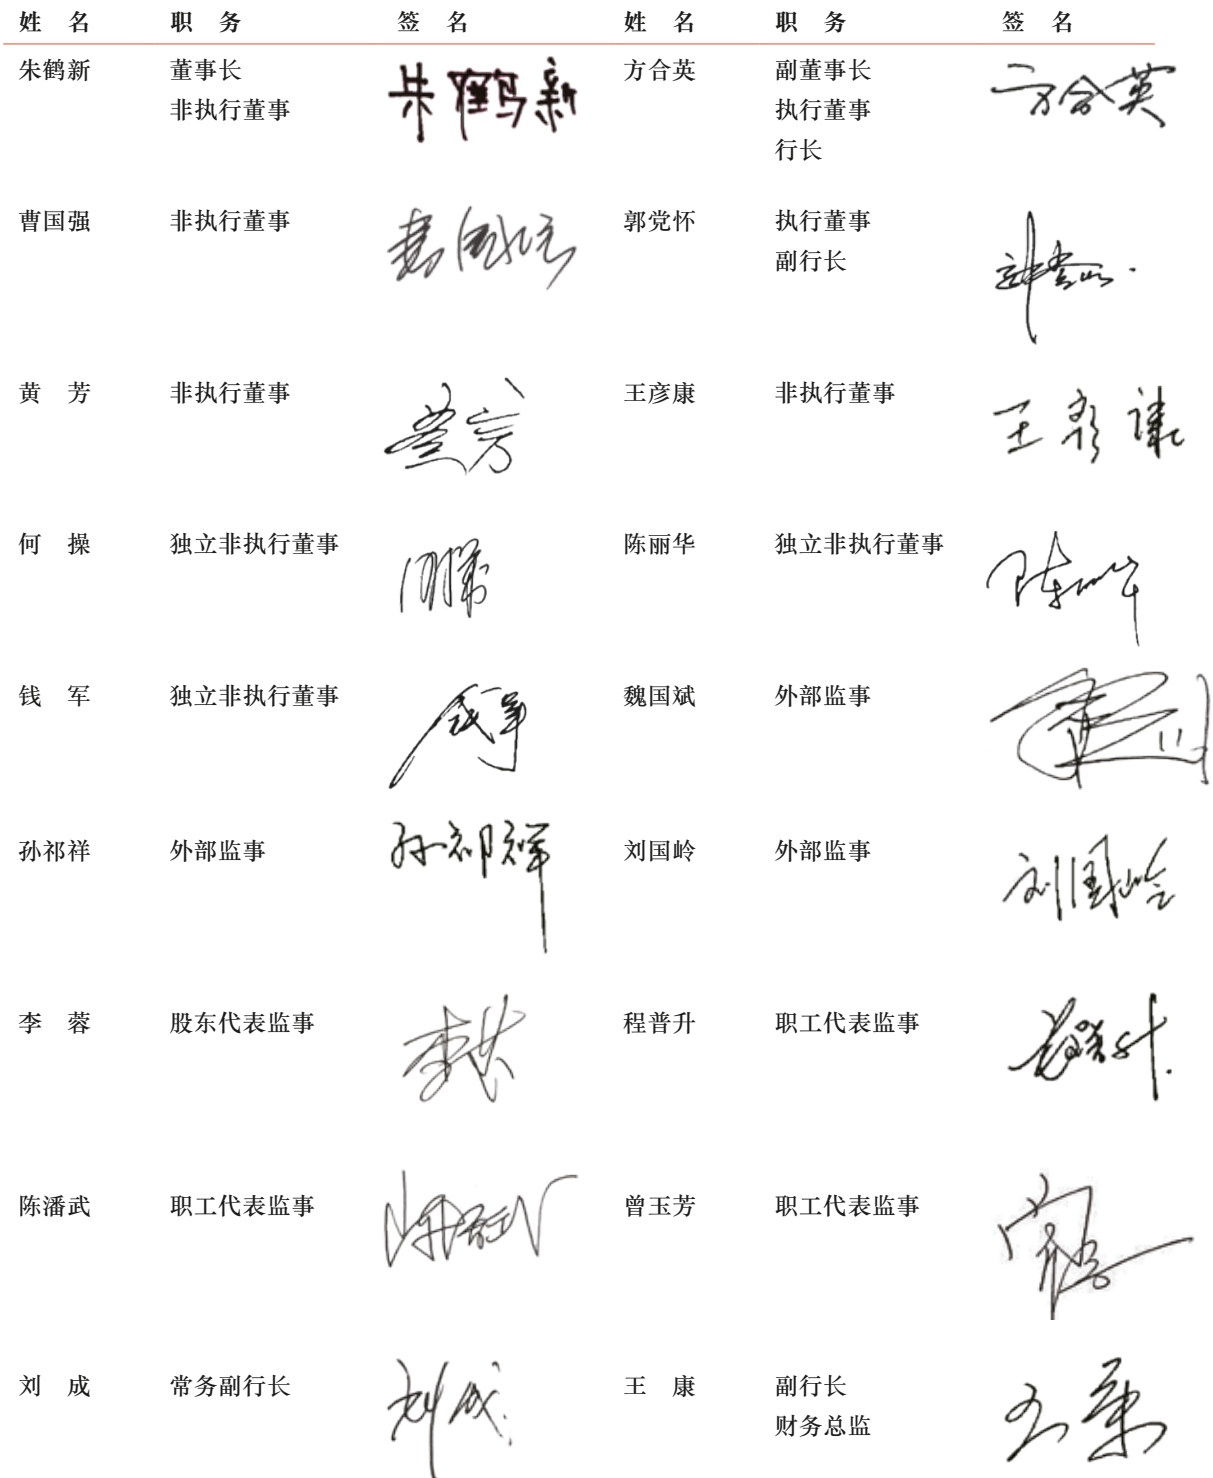 姓 名 职 务 签 名 姓 名 职 务 签 名
朱鹤新 董事长 朱鹤新 方合英 副董事长 方合英
非执行董事 执行董事
行长
曹国强 非执行董事 曹国强 郭党怀 执行董事 郭党怀
副行长
黄 芳 非执行董事 黄芳 王彦康 非执行董事 王彦康
何 操 独立非执行董事 何操 陈丽华 独立非执行董事 陈丽华
钱 军 独立非执行董事 钱军 魏国斌 外部监事
孙祁祥 外部监事 孙祁祥 刘国岭 外部监事 刘国岭
李 蓉 股东代表监事 李蓉 程普升 职工代表监事 程普升
陈潘武 职工代表监事 陈潘武 曾玉芳 职工代表监事
刘 成 常务副行长 刘成 王 康 副行长 王康
财务总监